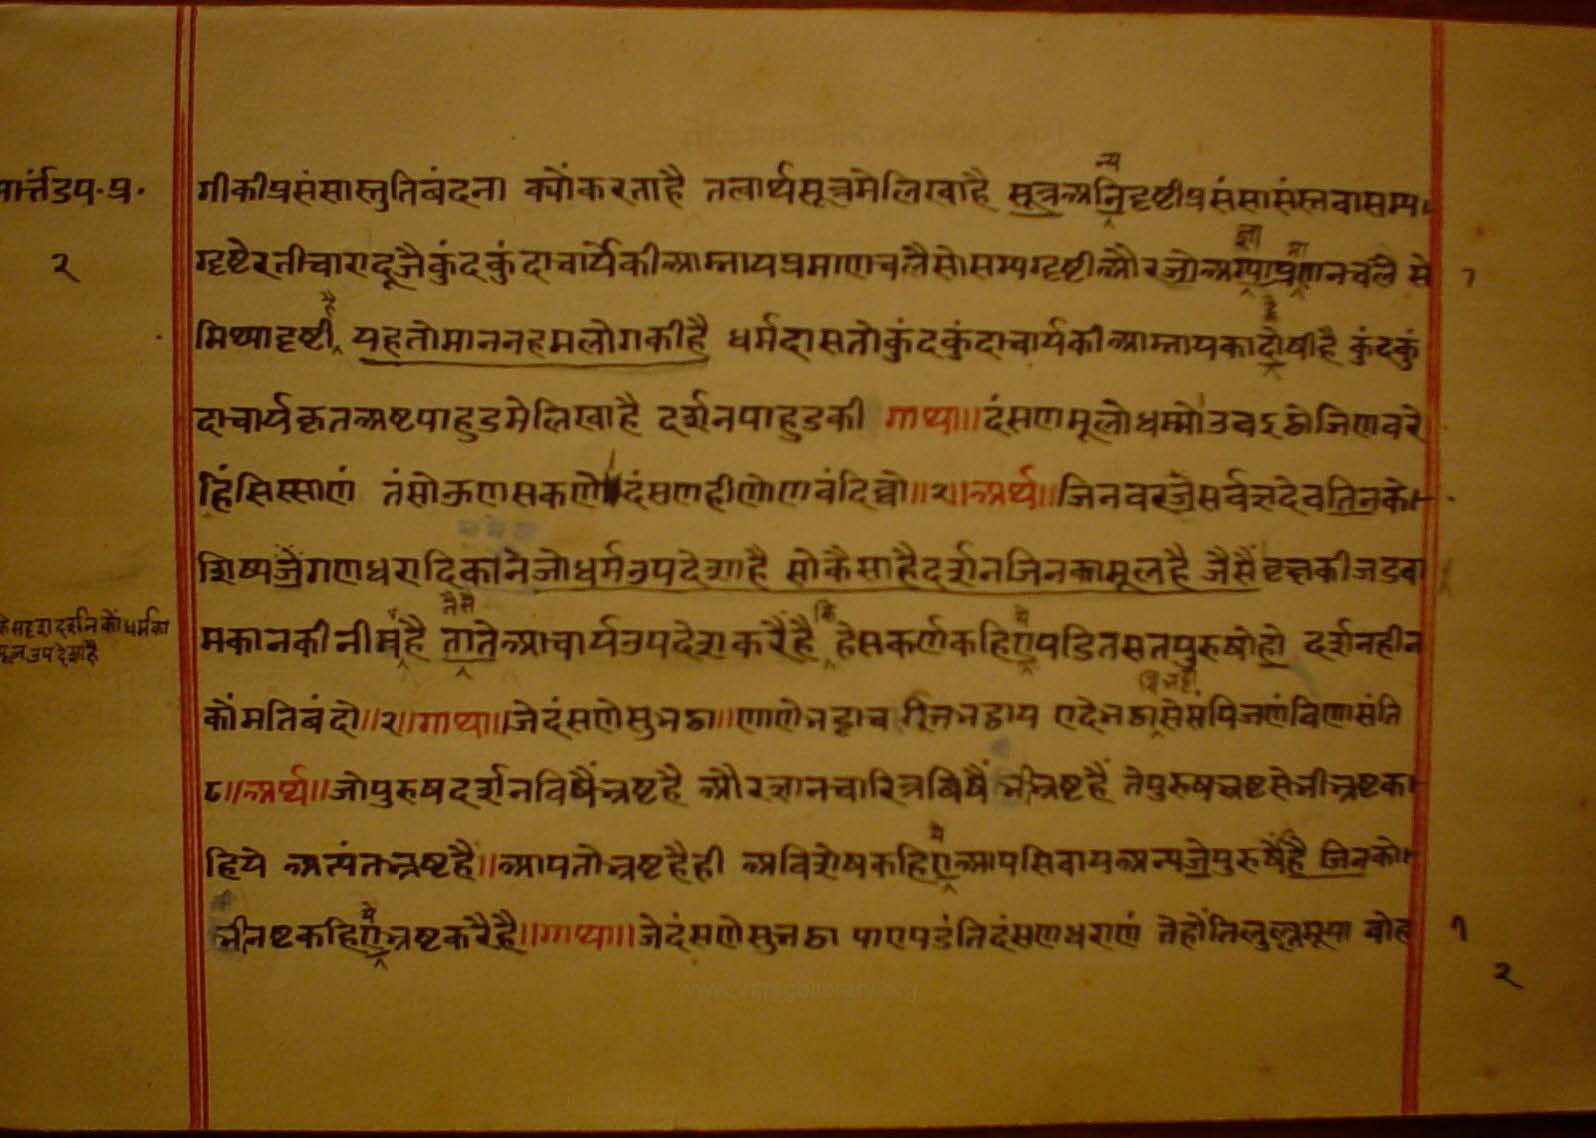 मार्त्तंडप.प्र.
२
गीकीप्रसंसास्तुतिबंदना क्योंकरताहै तत्वार्थसूत्रमेलिखाहै सूत्रअन्यदृष्टीप्रसंसासंस्तवासम्य
ग्दृष्टेरतीचारादूजैकुंदकुंदाचार्यकीआम्नायप्रमाणचलैसोसम्यग्दृष्टीऔरजोआज्ञाप्रमाणनचलै से
मिथ्यादृष्टीहै यहतोमाननहमलोगकीहै धर्मदासतोकुंदकुंदाचार्यकीआम्नायकाद्रोषीहै कुंदकुं
दाचार्यकृतअष्टपाहुडमेलिखाहै दर्शनपाहुडकी गाथा॥ दंसणमूलोधम्मोउवइठ्ठोजिणवरे
हिंसिस्साणं तंसोऊणसकणे दंसणहीणोणवंदिव्वो॥२॥अर्थ॥जिनवरजेसर्वज्ञदेवतिनको
शिष्यजेगणधरादिकानेजोधर्मउपदेशाहै सोकैसाहैदर्शनजिनकामूलहै जैसैंवृक्षकीजडवा
मकानकीनीमहै तैसै तातेआचार्यउपदेशकरैंहै कि हेसकर्णकहियेपंडितसतपुरुषोहो दर्शनहीन
कोंमतिबंदो॥२॥गाथा॥जेदंसणेसुभठा॥णाणेभट्ठाच एदेभठासेसंपिजणंविणासंति
८॥अर्थ॥जोपुरुषदर्शनविषैंभ्रष्टहै औरज्ञानचारित्रविषैंभीभ्रष्टहैं तेपुरुषभ्रष्टसेभीभ्रष्टक
हिये अत्यंतभ्रष्टहै॥आपतोभ्रष्टहैही अविशेषकहियेआपसिवायअन्यजेपुरुषहै जिनको
भीनष्टकहियेभ्रष्टकरैहै॥गाथा॥जेदंसणेसुभठा पाएपडंतिदंसणधराणं तेहोंतिलुल्लमूया बोह
१
२
मूलउपदेशाहै